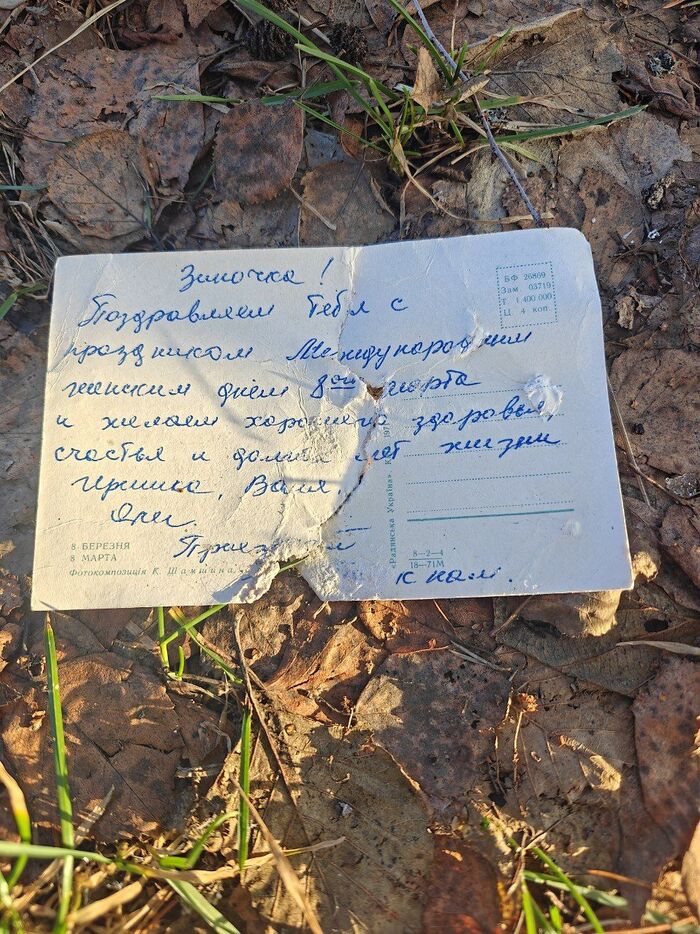 Зиночка!
Поздравляем тебя с
праздником Международным
женским днём 8ого марта
и желаем хорошего здоровья,
счастья и долгих лет жизни
Иришка, Валя,
Олег.
к нам.
БФ 26869
Зам. 03719
Т. 1.400.000
Ц. 4 коп.
8 БЕРЕЗНЯ
8 МАРТА
Фотокомпозиція К. Шамшина
«Радянська Україна».
8—2—4
18—71М